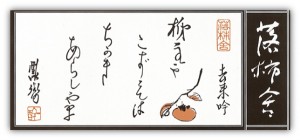 落柿舎
去来吟
柿主や
こずゑは
ちかき
あらしやま